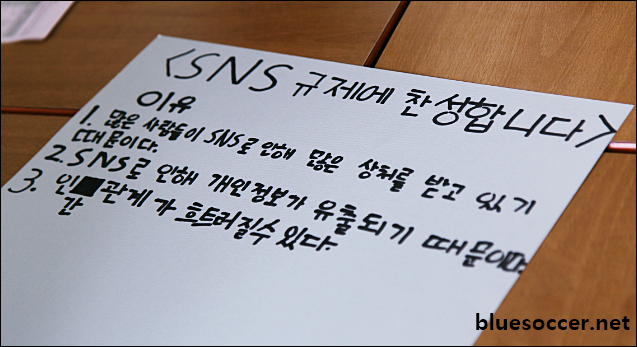 <SNS 규제에 찬성합니다>
이유
1. 많은 사람들이 SNS로 인해 많은 상처를 받고 있기
때문이다.
2. SNS로 인해 개인정보가 유출되기 때문이다.
3. 인■관계가 흐트러질수 있다.
간
bluesoccer.net